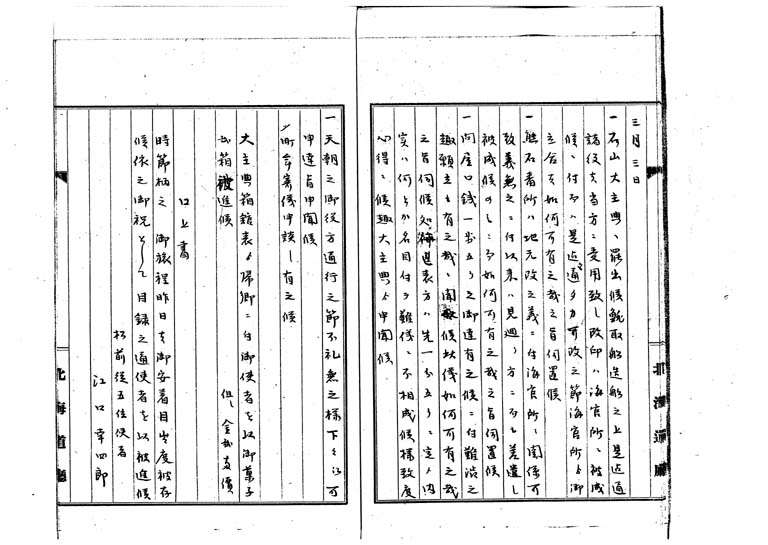 三月三日
一石山大主典、罷出候鯡取船送船之上是迄通
諸役夫当方ニ受用致し改印ハ海官所ニ被成
候ニ付而ハ是迄通り方可改之節海官所ゟ御
立合夫如何可有之哉之旨伺置候
一熊石番所ハ地元改之義ニ付海官所ニ関係可
致義無之ニ付以来ハ見廻り方ニ而も差遣し
被成候のミニ而如何可有之哉之旨伺置候
一問屋口銭一歩五り之御達有之候ニ付難渋之
趣願上も有之哉ニ聞候此儀如何可有之哉
之旨伺候処函館表方ハ先一歩五りニ定メ内
実ハ何とか名目付而難儀ニ不相成候様致度
心得ニ候趣大主典ゟ申聞候
一天朝之御役方通行之節不礼無之様下々江可
申達旨申聞候
町会寄儀申談し有之候
大主典箱館表ゟ帰郷ニ付御使者を以御菓子
弐箱被進候
但し金弐歩價
口上書
時節柄之御旅程昨日者御安着目出度被存
候依之御祝として目録之通使者を以被進候
松前従五位使者
江口幸四郎
北海道廳
北海道廳